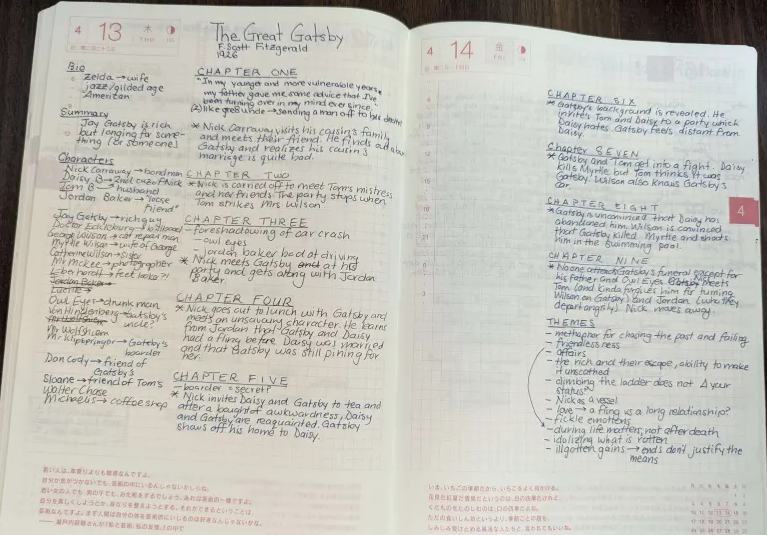 4 13 木
The Great Gatsby
F. Scott Fitzgerald
1926
Bio
Zelda → wife
jazz/gilded age
American
Summary
Jay Gatsby is rich
but longing for some-
thing (or someone)
Characters
Nick Carraway → bondman
Daisy B → 2nd cuz of Nick
Tom B → husband
Jordan Baker → "loose
friend"
Jay Gatsby → rich guy
Doctor Eckleburg → billboard
George Wilson → car repair man
Myrtle Wilson → wife of George
Catherine Wilson → sister
Mr McKee → photographer
→ feet
Jordan Baker
Lucille →
Owl Eyes → drunk man
Von Hindenberg → Gatsby's
uncle?
Mr Wolfshiem
Mr Wolfshiem
Mr Klipspringer → Gatsby's
boarder
Dan Cody → friend of
Gatsby's
Sloane → friend of Tom's
Walter Chase
Michaelis → coffee shop
CHAPTER ONE
"In my younger and more vulnerable years
my father gave me some advice that I've
been turning over in my mind ever since."
(2) like great uncle → sending a man off to
* Nick Carraway visits his cousin's family
and meets their friend. He finds out about
Gatsby and realizes his cousin's
marriage is quite bad.
CHAPTER TWO
* Nick is carried off to meet Tom's mistress
and her friends. The party stops when
Tom strikes Mrs Wilson
CHAPTER THREE
- foreshadowing of car crash
- owl eyes
- Jordan baker bad at driving
* Nick meets Gatsby and at his
party and gets along with Jordan
Baker.
CHAPTER FOUR
* Nick goes out to lunch with Gatsby and
meets an unsavoury character. He learns
from Jordan that Gatsby and Daisy
had a fling before Daisy was married
and that Gatsby was still pining for
her.
CHAPTER FIVE
- boarder = secret
* Nick invites Daisy and Gatsby to tea and
after a bought of awkwardness, Daisy
and Gatsby are reaquainted. Gatsby
shows off his home to Daisy.
4 14 金
CHAPTER SIX
* Gatsby's background is revealed. He
invites Tom and Daisy to a party which
Daisy hates. Gatsby feels distant from
Daisy.
Chapter SEVEN
* Gatsby and Tom get into a fight. Daisy
kills Myrtle but Tom thinks it was
Gatsby. Wilson also knows Gatsby's
car.
CHAPTER EIGHT
* Gatsby is unconvinced that Daisy has
abandoned him. Wilson is convinced
that Gatsby killed Myrtle and shoots
him in the swimming pool.
4
CHAPTER NINE
* Noone attends Gatsby's funeral except for
his father and Owl Eyes. Nick meets
Tom (and kinda forgives him for turning
Wilson on Gatsby) and Jordan (who they
depart angrily). Nick moves away.
THEMES
- metaphor for chasing the past and failing
- friendlessness
- affairs
- the rich and their escape, ability to make
it unscathed
- climbing the ladder does not Δ your
status?
- Nick as a vessel
- love → a fling vs a long relationship?
- fickle emotions
- during life matters; not after death
- idolizing what is rotten
- illgotten gains → ends don't justify the
means